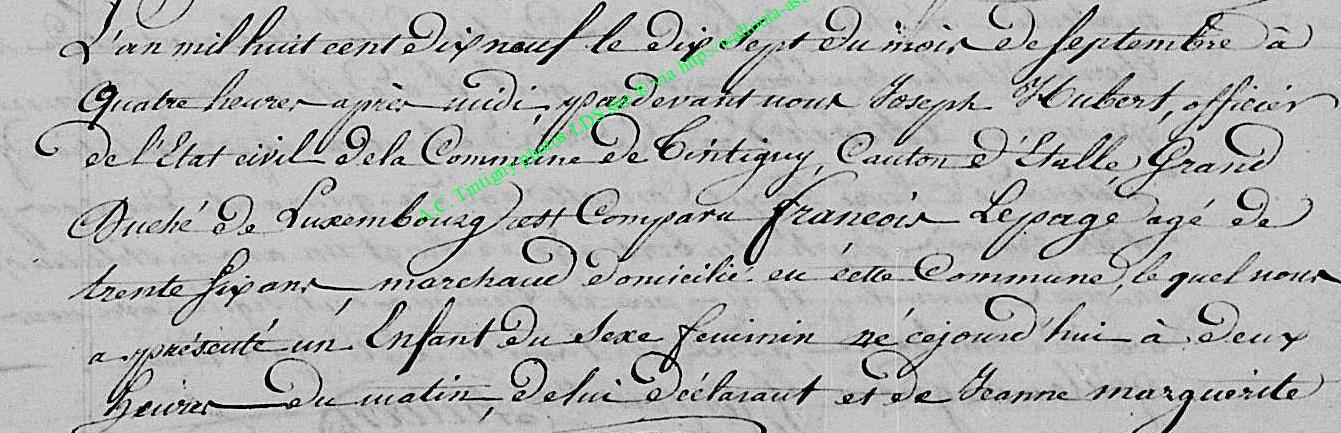 L'an mil huit cent dix neuf le dix sept du mois de septembre à
quatre heures après midi, pardevant nous Joseph Hubert, officier
de l'Etat civil de la Commune de Tintigny, Canton d'Etalle, Grand
Duché de Luxembourg est Comparu francois Lepage agé de
trente six ans, marchand domicilié en cette Commune, le quel nous
a présenté un Enfant du sexe feminin né cejourd'hui à deux
heures du matin, de lui déclarant et de Jeanne marguerite
A.C. Tintigny photos LDS
via http